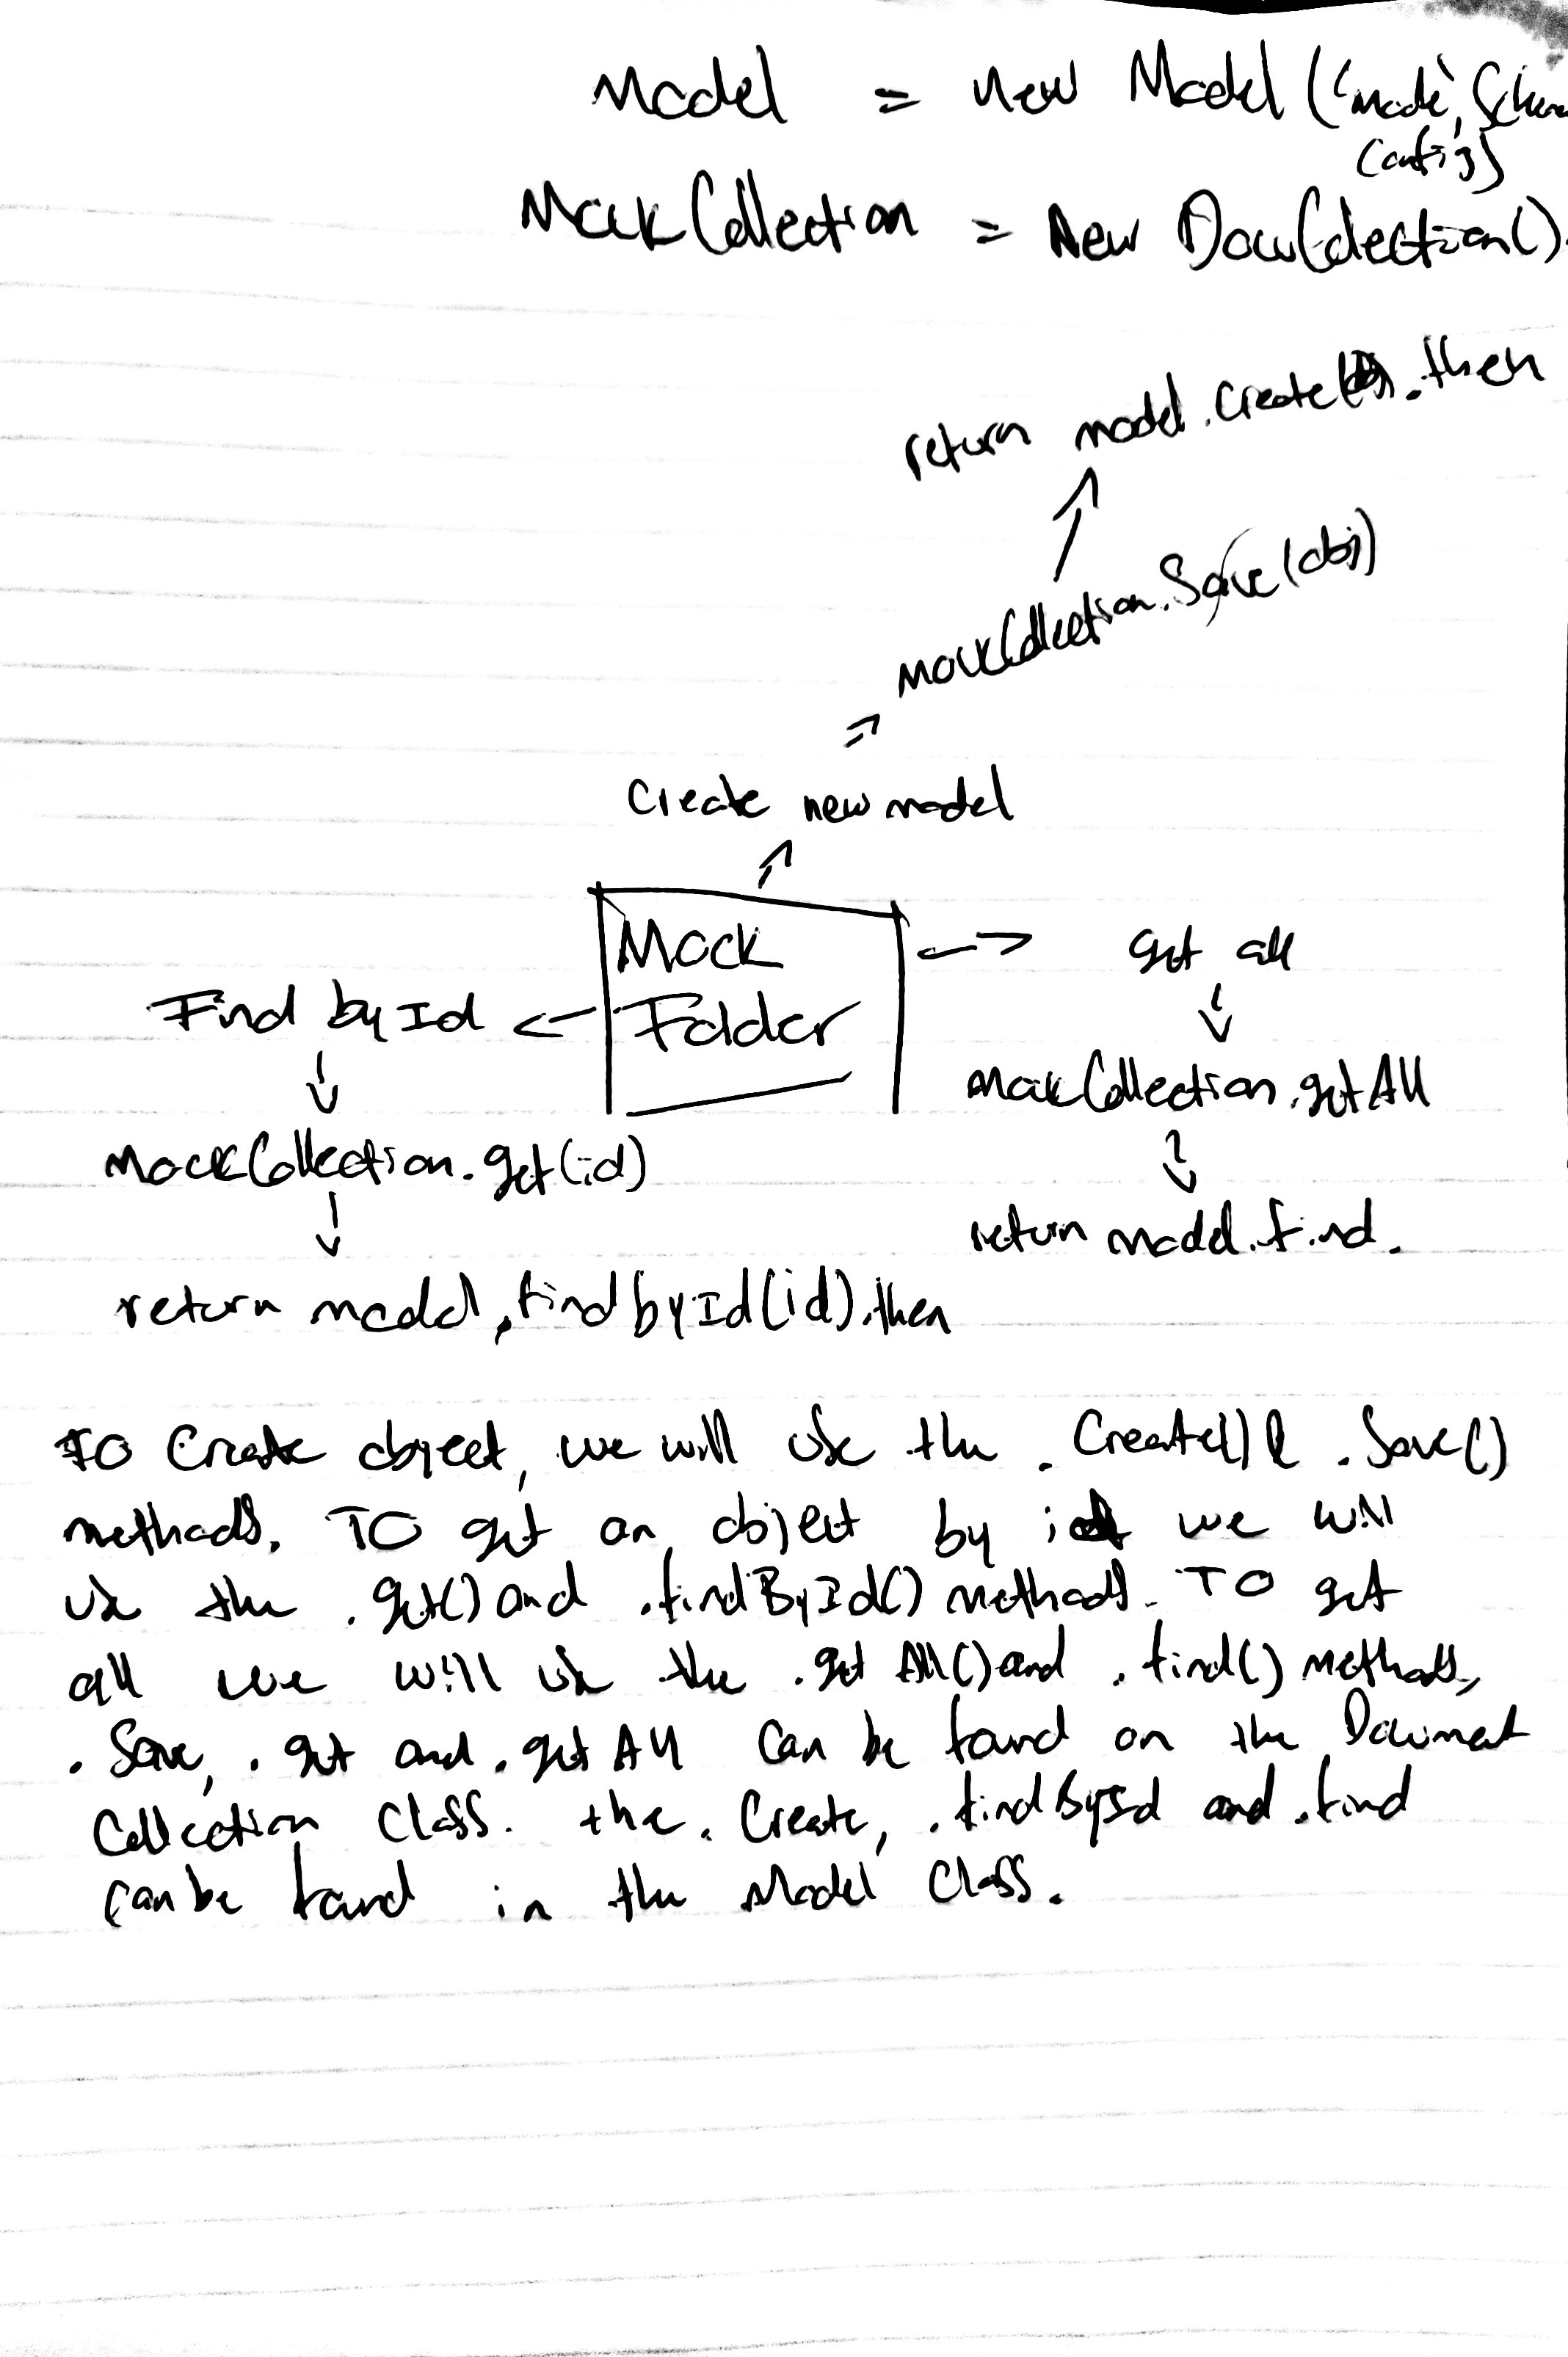 Model = New Model ('mode',
Config)
MockCollection = New DocuCollection().
return model.create().then
mockCollection.Save(obj)
Create new model
Mock
Folder
get all
Find by Id
mockCollection.getAll
MockCollection.get(id)
return model.find.
return model.findbyId(id).then
TO Create object, we will use the .Create() & .Save()
methods. TO get an object by id we will
use the .get() and .findById() methods. TO get
all we will use the .get All() and .find() methods,
.Save, .get and .get All Can be found on the Document
Collection Class. the .Create, .findById and .find
can be found in the Model Class.